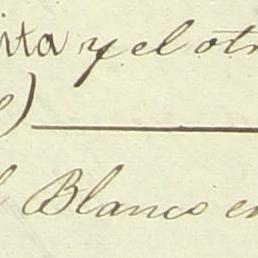 ita y el otr
)
Blanco en